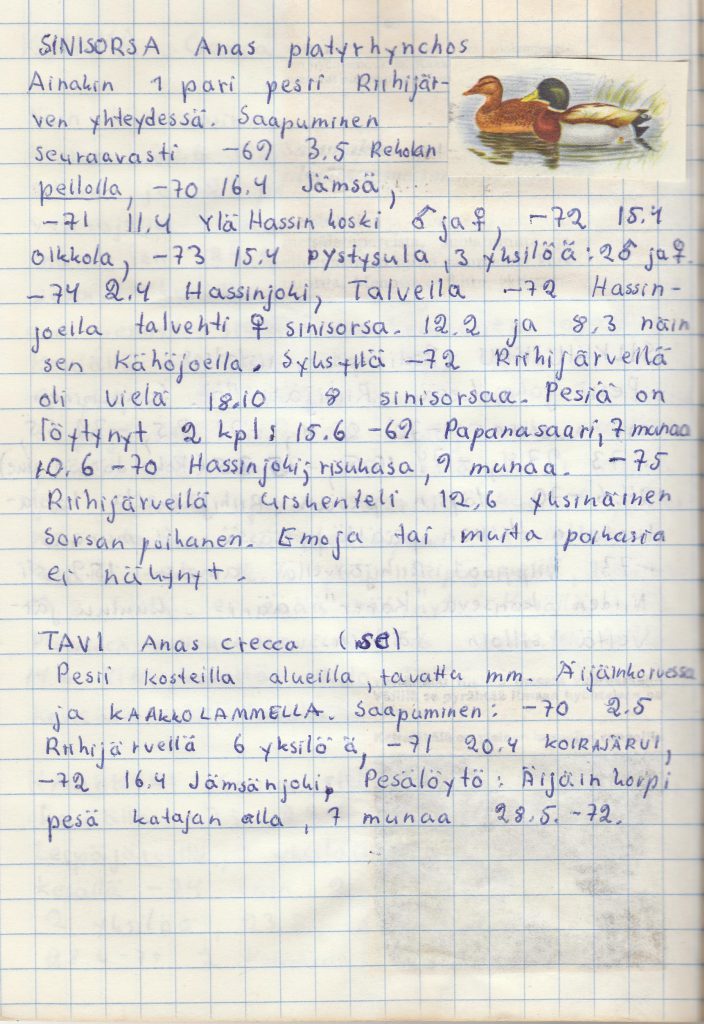 SINISORSA Anas platyrhynchos
Ainakin 1 pari pesii Riihijär-
ven yhteydessä. Saapuminen
seuraavasti -69 3.5 Reholan
pellolla, -70 16.4 Jämsä,
-71 11.4 Ylä Hassin koski ♂ ja ♀, -72 15.4
Oikkola, -73 15.4 Pystysula, 3 yksilöä: 2♂ ja ♀.
-74 2.4 Hassinjoki, Talvella -72 Hassin-
joella talvehti ♀ sinisorsa. 12.2 ja 8.3 näin
sen Kähöjoella. Syksyllä -72 Riihijärvellä
oli vielä 18.10 8 sinisorsaa. Pesiä on
löytynyt 2 kpl: 15.6 -69 Papanasaari, 7 munaa
10.6 -70 Hassinjoki; risukasa, 9 munaa. -75
Riihijärvellä uiskenteli 12.6 yksinäinen
sorsan poikanen. Emoja tai muita poikasia
ei näkynyt.
TAVI Anas crecca (se)
Pesii kosteilla alueilla, tavattu mm. Äijäinkorvessa
ja KAAKKOLAMMELLA. Saapuminen: -70 2.5
Riihijärvellä 6 yksilöä, -71 20.4 KOIRAJÄRVI,
-72 16.4 Jämsänjoki, Pesälöytö: Äijäin korpi
pesä katajan alla, 7 munaa 28.5. -72.